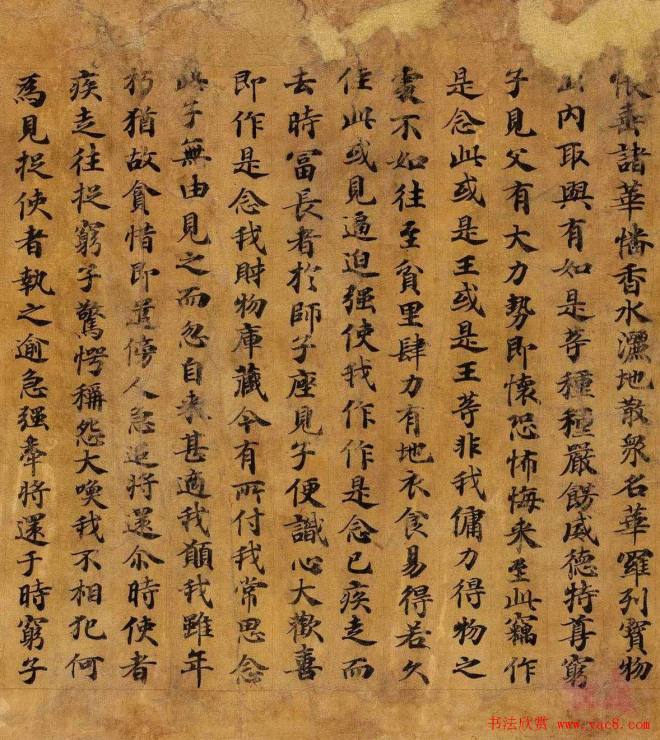 帳垂諸華幡香水灑地散衆名華羅列寳物
出内取與有如是等種種嚴餝威德特尊窮
子見父有大力勢即懷恐怖悔来至此竊作
是念此或是王或是王等非我傭力得物之
處不如往至貧里肆力有地衣食易得若久
住此或見逼迫强使我作作是念已疾走而
去時冨長者於師子座見子便識心大歡喜
即作是念我財物庫藏今有所付我常思念
此子無由見之而忽自来甚適我願我雖年
朽猶故貪惜即遣傍人急追將還尒時使者
疾走往捉窮子驚愕稱怨大喚我不相犯何
為見捉使者執之逾急强牽將還于時窮子
书法欣赏 www.yac8.com